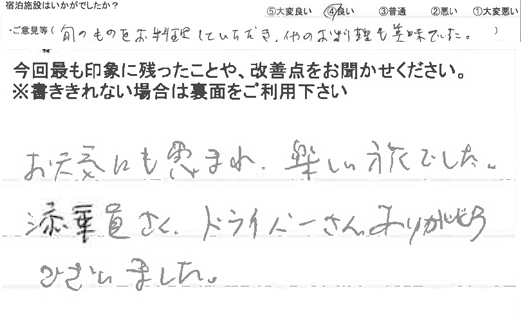 宿泊施設はいかがでしたか？ ⑤大変良い ④良い ③普通 ②悪い ①大変悪い
・ご意見等( 旬のものをお料理していただき、他のお料理も美味でした。 )
今回最も印象に残ったことや、改善点をお聞かせください。
※書ききれない場合は裏面をご利用下さい
お天気にも恵まれ、楽しい旅でした。
添乗員さん、ドライバーさんありがとう
ございました。